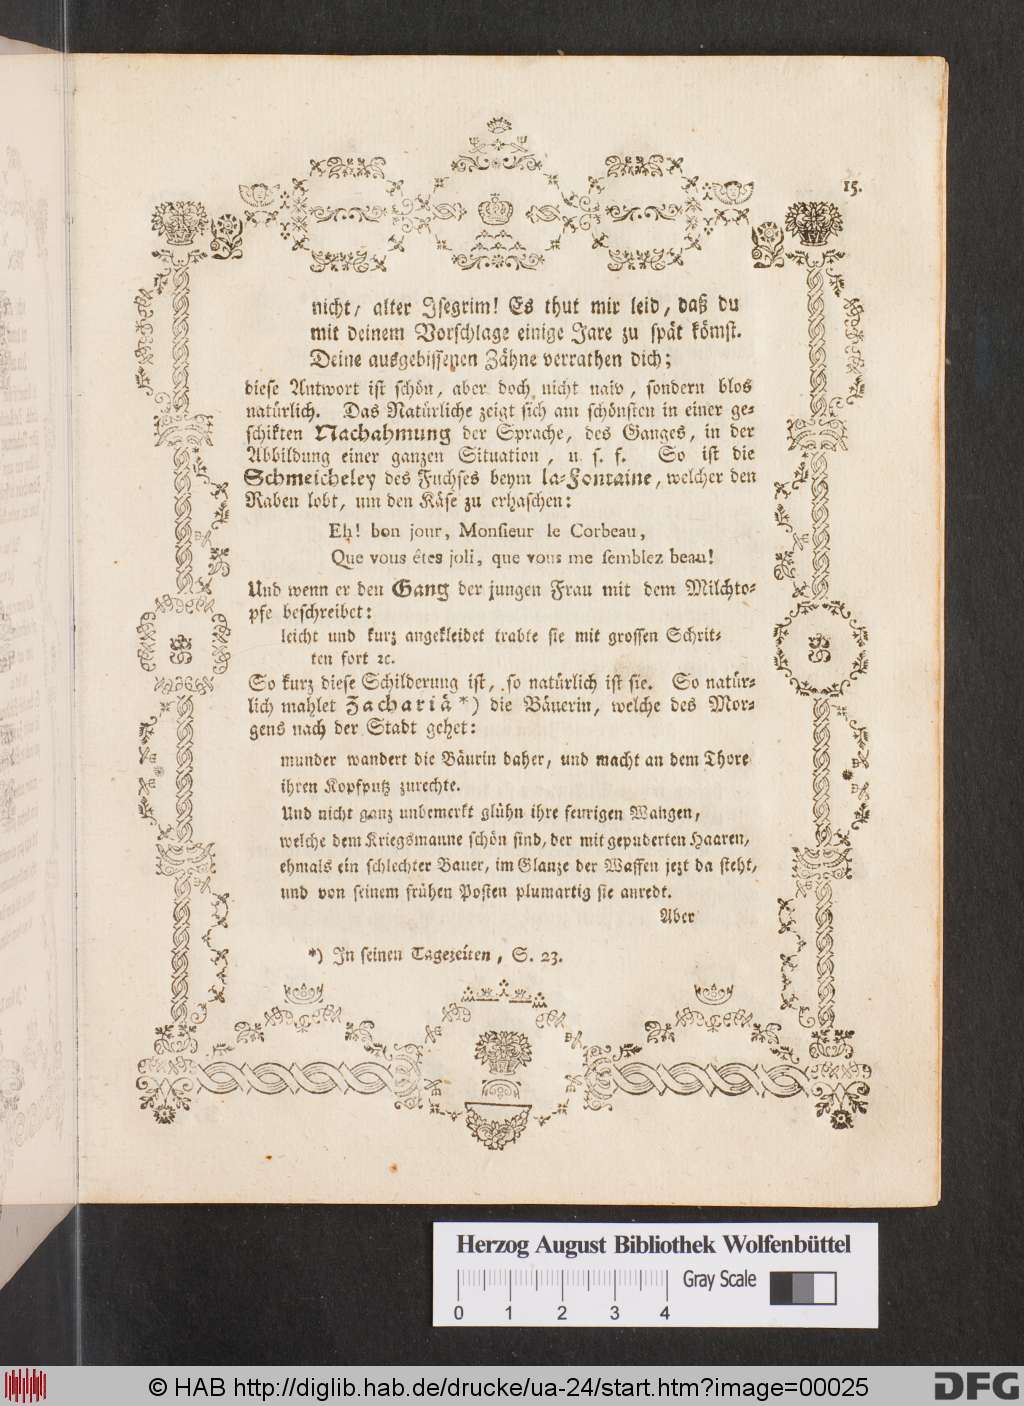 15.
nicht, alter Isegrim! Es thut mir leid, daß du
mit deinem Vorschlage einige Jare zu spät kömst.
Deine ausgebissenen Zähne verrathen dich;
diese Antwort ist schön, aber doch nicht naiv, sondern blos
natürlich. Das Natürliche zeigt sich am schönsten in einer ge-
schikten Nachahmung der Sprache, des Ganges, in der
Abbildung einer ganzen Situation, u. s. f. So ist die
Schmeicheley des Fuchses beym la-Fontaine, welcher den
Raben lobt, um den Käse zu erhaschen:
Eh! bon jour, Monſieur le Corbeau,
Que vous êtes joli, que vous me ſemblez beau!
Und wenn er den Gang der jungen Frau mit dem Milchto-
pfe beschreibet:
leicht und kurz angekleidet trabte sie mit grossen Schrit-
ten fort ꝛc.
So kurz diese Schilderung ist, so natürlich ist sie. So natür-
lich mahlet Zachariä *) die Bäuerin, welche des Mor-
gens nach der Stadt gehet:
munder wandert die Bäurin daher, und macht an dem Thore
ihren Kopfputz zurechte.
Und nicht ganz unbemerkt glühn ihre feurigen Wangen,
welche dem Kriegsmanne schön sind, der mit gepuderten Haaren,
ehmals ein schlechter Bauer, im Glanze der Waffen jezt da steht,
und von seinem frühen Posten plumartig sie anredt.
Aber
*) In seinen Tagezeiten, S. 23.
Herzog August Bibliothek Wolfenbüttel
0 1 2 3 4
Gray Scale
© HAB http://diglib.hab.de/drucke/ua-24/start.htm?image=00025
DFG